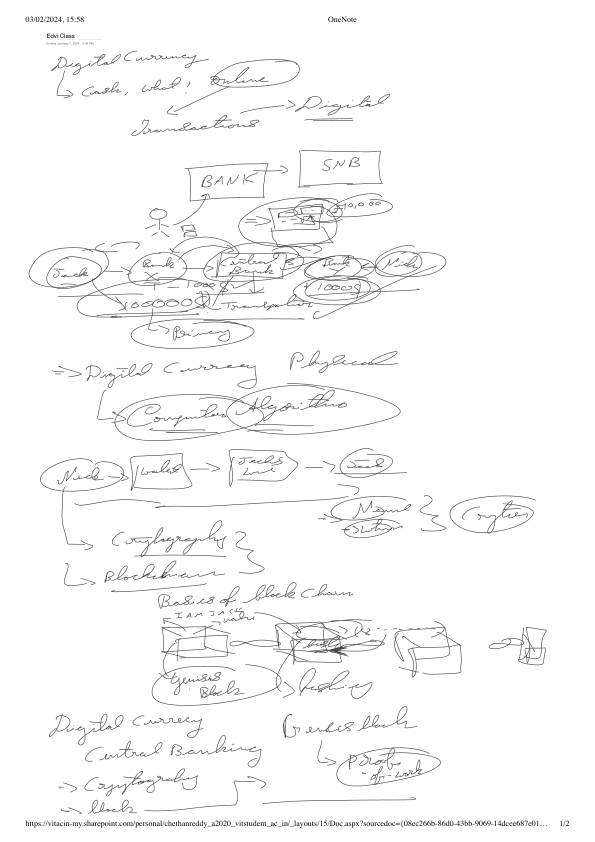 03/02/2024, 15:58 OneNote
Edvi Class
Digital Currency
↳ Cash, what? Online
Transactions → Digital
BANK → SNB
⇒ 10,000
Jack → Bank X → Central Bank Bank Y Nick
1000$ 1000$
100000$
↳ Privacy
⇒ Digital Currecy Physical
↳ Algorithms
Nick → → Jack's → Jack
↳ Cryptography
↳ Blockchain
Basics of block Chain
I AM JACK
Genesis Block → hashing
Digital Currecy Genesis block
Central Banking ↳ proof-of-work
→ Cryptography
→ block
https://vitacin-my.sharepoint.com/personal/chethanreddy_a2020_vitstudent_ac_in/_layouts/15/Doc.aspx?sourcedoc={08ec266b-86d0-43bb-9069-14dcee687e01… 1/2